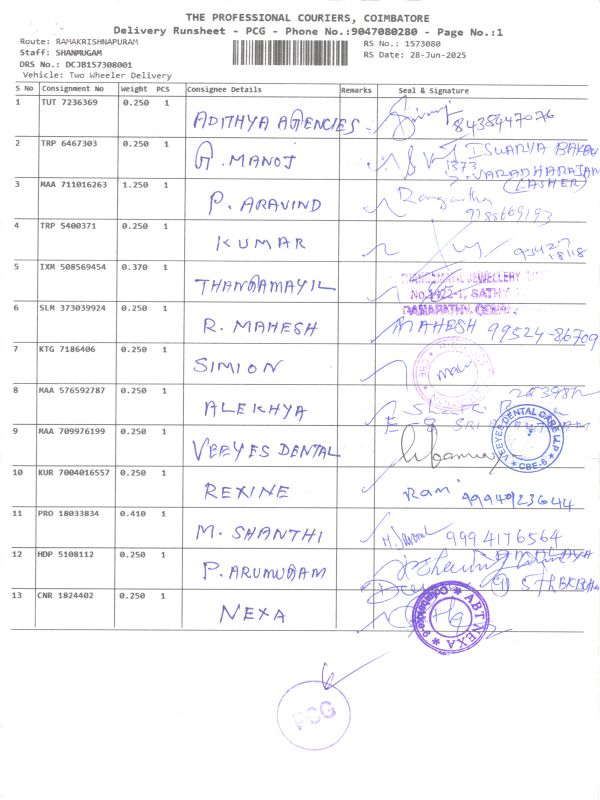 THE PROFESSIONAL COURIERS, COIMBATORE
Delivery Runsheet - PCG - Phone No.:9047080280 - Page No.:1
Route: RAMAKRISHNAPURAM
RS No.: 1573080
Staff: SHANMUGAM
RS Date: 28-Jun-2025
DRS No.: DCJB157308001
Vehicle: Two Wheeler Delivery
S No Consignment No Weight PCS Consignee Details Remarks Seal & Signature
1 TUT 7236369 0.250 1 ADITHYA AGENCIES 8438447076
2 TRP 6467303 0.250 1 G. MANOJ ISWARYA
1573 VARADHARAJAN
(CASHER)
3 MAA 711016263 1.250 1 P. ARAVIND
9788669193
4 TRP 5400371 0.250 1 KUMAR
5 IXM 508569454 0.370 1 THANGAMAYIL THANGAMAYIL JEWELLERY
No.1422-1, SATHY
6 SLM 373039924 0.250 1 R. MAHESH MAHESH 99524-86709
7 KTG 7186406 0.250 1 SIMION
8 MAA 576592787 0.250 1 ALEKHYA
9 MAA 709976199 0.250 1 VEEYES DENTAL VEEYES DENTAL CARE LLP
CBE-6
10 KUR 7004016557 0.250 1 REXINE Ram 9994923644
11 PRO 18033834 0.410 1 M. SHANTHI 9994176564
12 HDP 5108112 0.250 1 P. ARUMUGAM
13 CNR 1824402 0.250 1 NEXA ABT NEXA
PCG